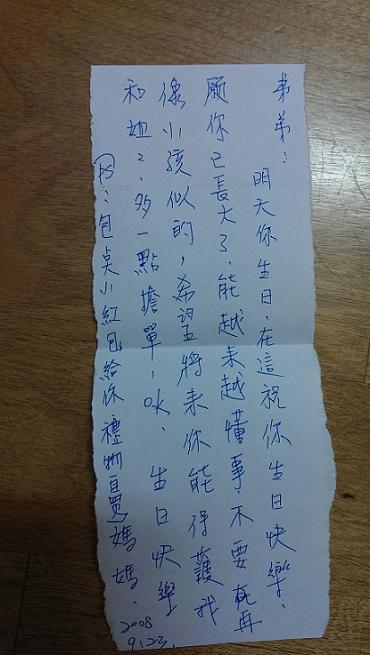 弟弟：
明天你生日，在這祝你生日快樂，
願你已長大了，能越來越懂事，不要在再
像小孩似的，希望將來你能保護我
和她2，多一點擔單，OK，生日快樂
PS：包桌小紅包給你禮物自買媽媽.
2008
9.23.